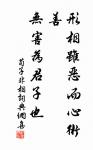 形相雖惡而心術
善
無害為君子也
荀子非相詞典網集